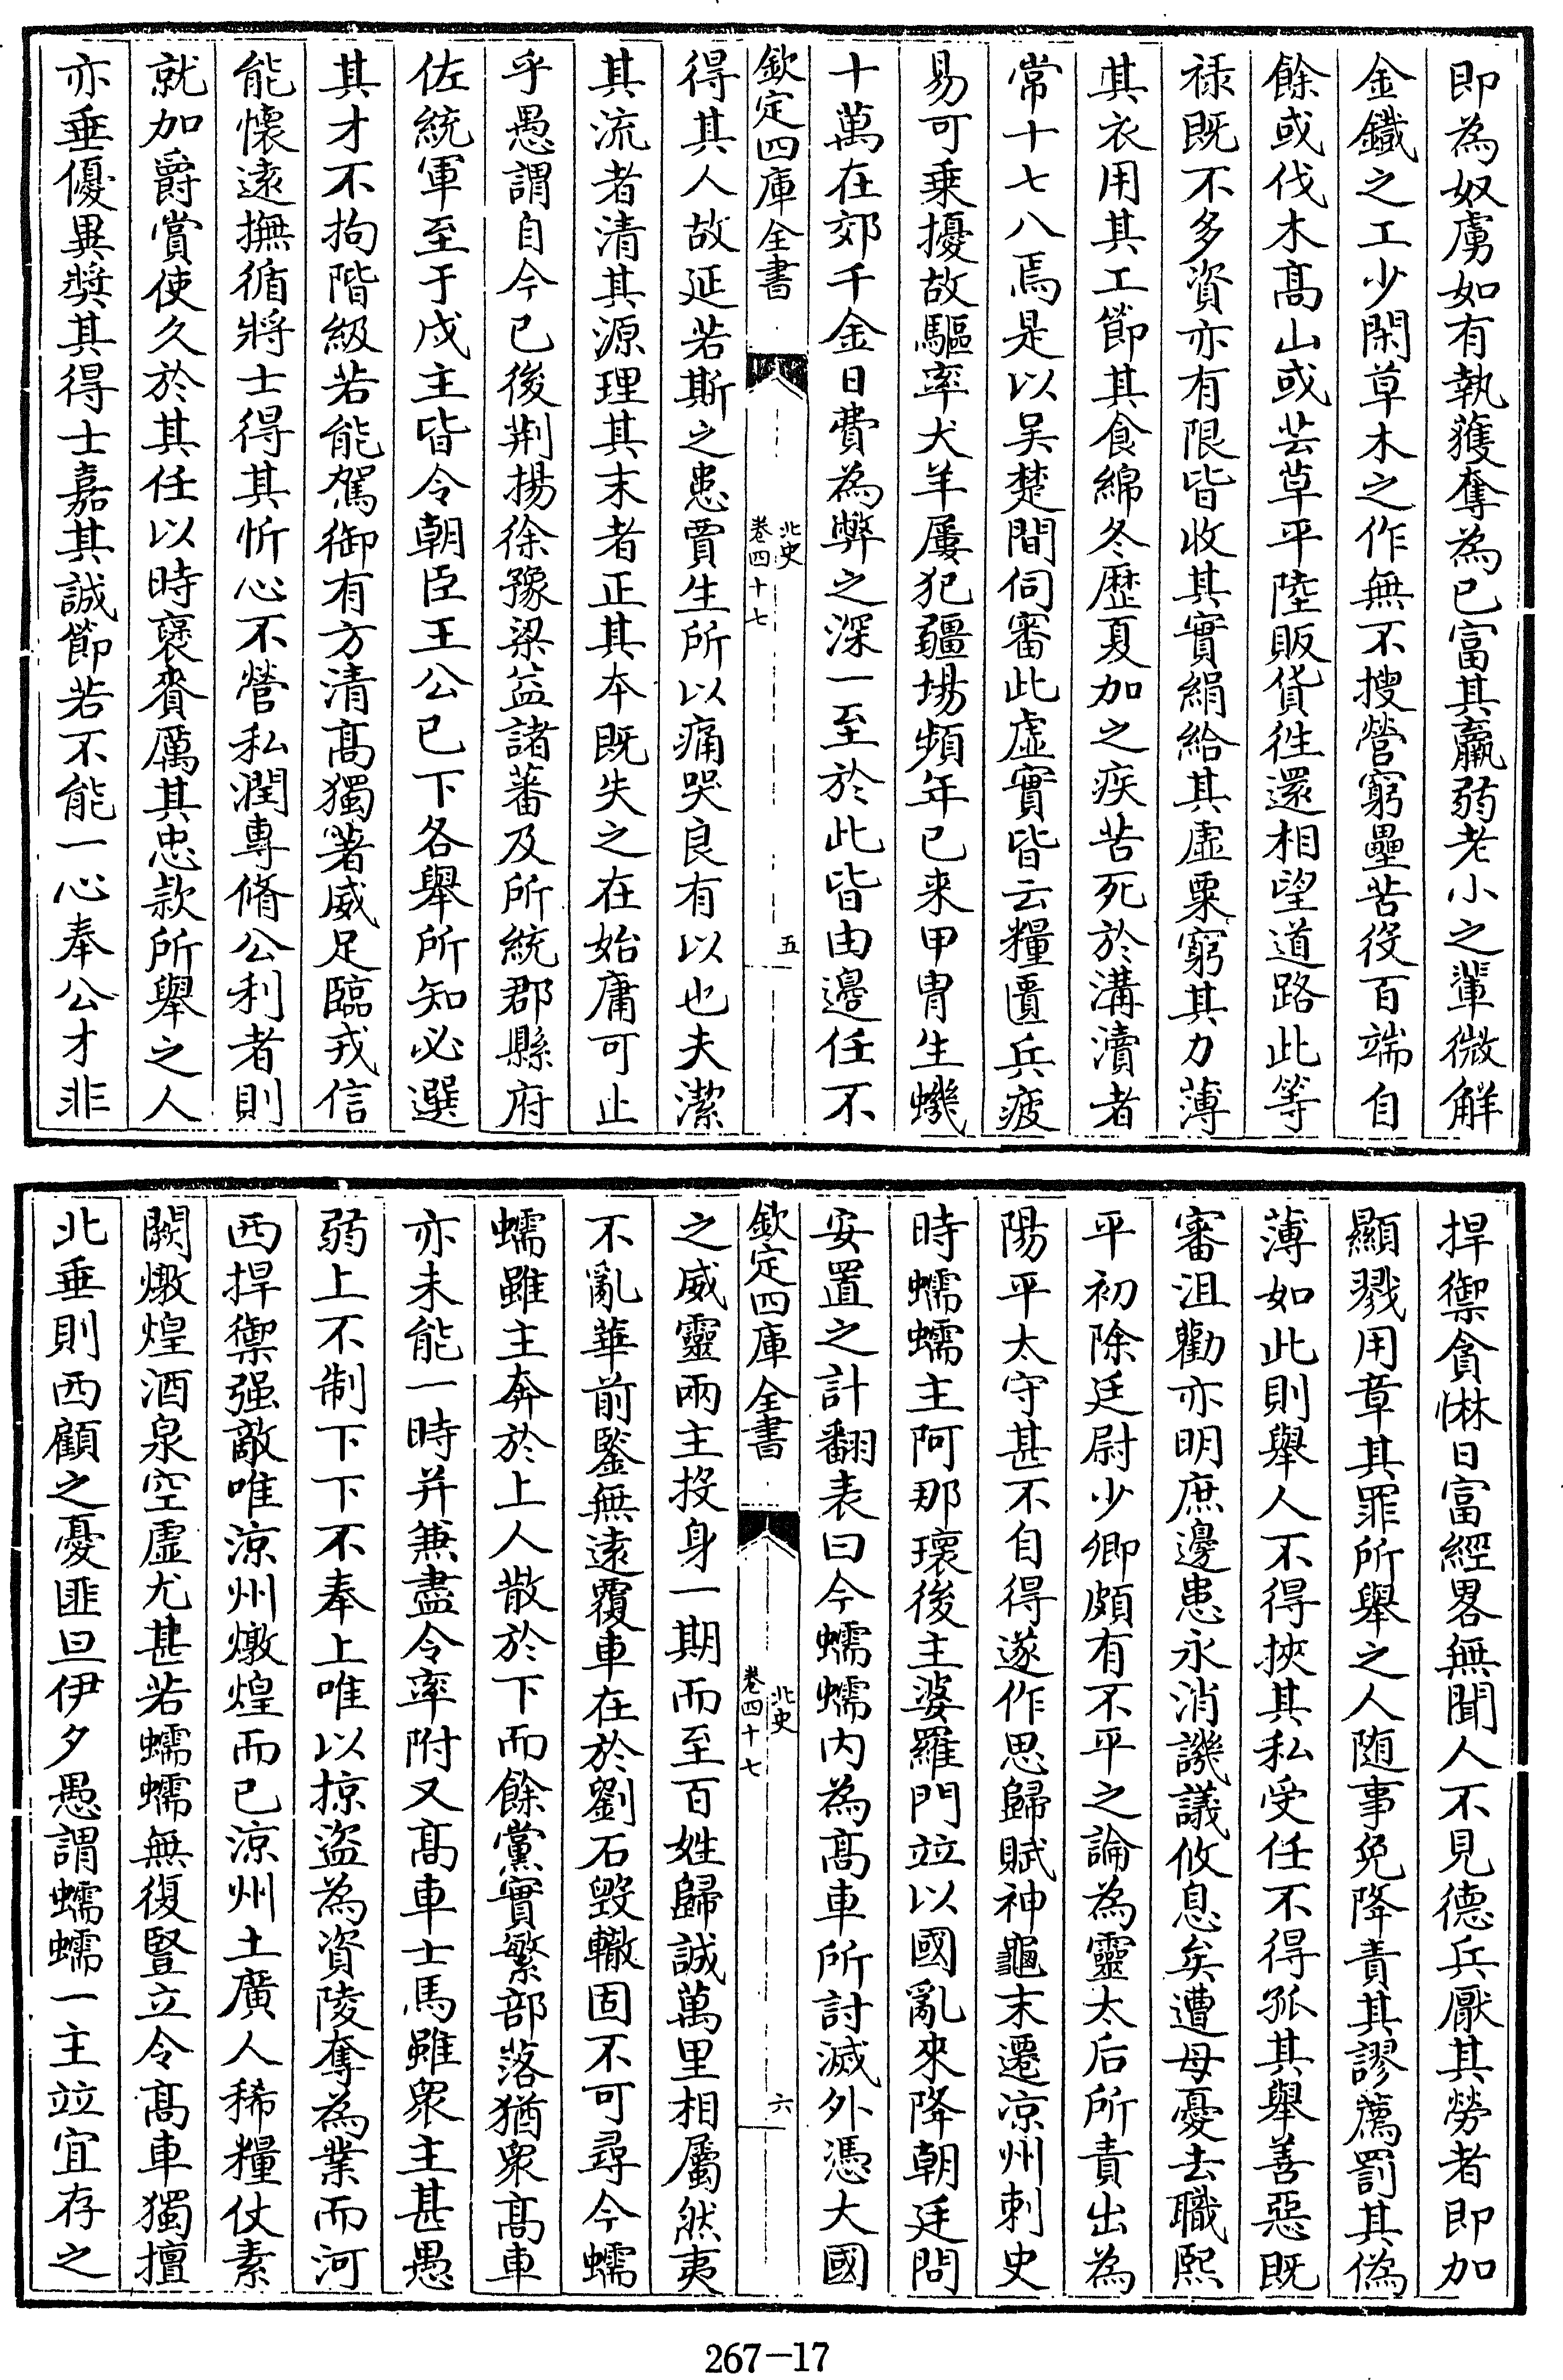 即為奴虜如有執獲奪為已富其羸弱老小之輩微解
金鐵之工少閑草木之作無不搜營窮壘苦役百端自
餘或伐木髙山或芸草平陸販貨徃還相望道路此等
禄既不多資亦有限皆收其實絹給其虛粟窮其力薄
其衣用其工節其食綿冬歷夏加之疾苦死於溝瀆者
常十七八焉是以吴楚間伺審此虛實皆云糧匱兵疲
易可乗擾故驅率犬羊屢犯疆埸頻年已来甲胄生蟣
十萬在郊千金日費為弊之深一至於此皆由邊任不
欽定四庫全書
北史
卷四十七
五
得其人故延若斯之患賈生所以痛哭良有以也夫潔
其流者清其源理其末者正其本既失之在始庸可止
乎愚謂自今已後荆揚徐豫梁益諸蕃及所統郡縣府
佐統軍至于戍主皆令朝臣王公已下各舉所知必選
其才不拘階級若能駕御有方清髙獨著威足臨戎信
能懷遠撫循將士得其忻心不營私潤專脩公利者則
就加爵賞使久於其任以時褒賚厲其忠款所舉之人
亦垂優異奬其得士嘉其誠節若不能一心奉公才非
捍禦貪惏日富經畧無聞人不見德兵厭其勞者即加
顯戮用章其罪所舉之人隨事免降責其謬薦罰其偽
薄如此則舉人不得挾其私受任不得孤其舉善惡既
審沮勸亦明庶邊患永消譏議攸息矣遭母憂去職熙
平初除廷尉少卿頗有不平之論為靈太后所責出為
陽平太守甚不自得遂作思歸賦神龜末遷涼州刺史
時蠕蠕主阿那瓌後主婆羅門竝以國亂來降朝廷問
安置之計翻表曰今蠕蠕内為髙車所討滅外憑大國
欽定四庫全書
北史
卷四十七
六
之威靈兩主投身一期而至百姓歸誠萬里相屬然夷
不亂華前鑒無遠覆車在於劉石毁轍固不可尋今蠕
蠕雖主奔於上人散於下而餘黨實繁部落猶衆髙車
亦未能一時并兼盡令率附又髙車士馬雖衆主甚愚
弱上不制下下不奉上唯以掠盜為資陵奪為業而河
西捍禦强敵唯涼州燉煌而已涼州土廣人稀糧仗素
闕燉煌酒泉空虛尤甚若蠕蠕無復豎立令髙車獨擅
北垂則西顧之憂匪旦伊夕愚謂蠕蠕一主竝宜存之
267-17